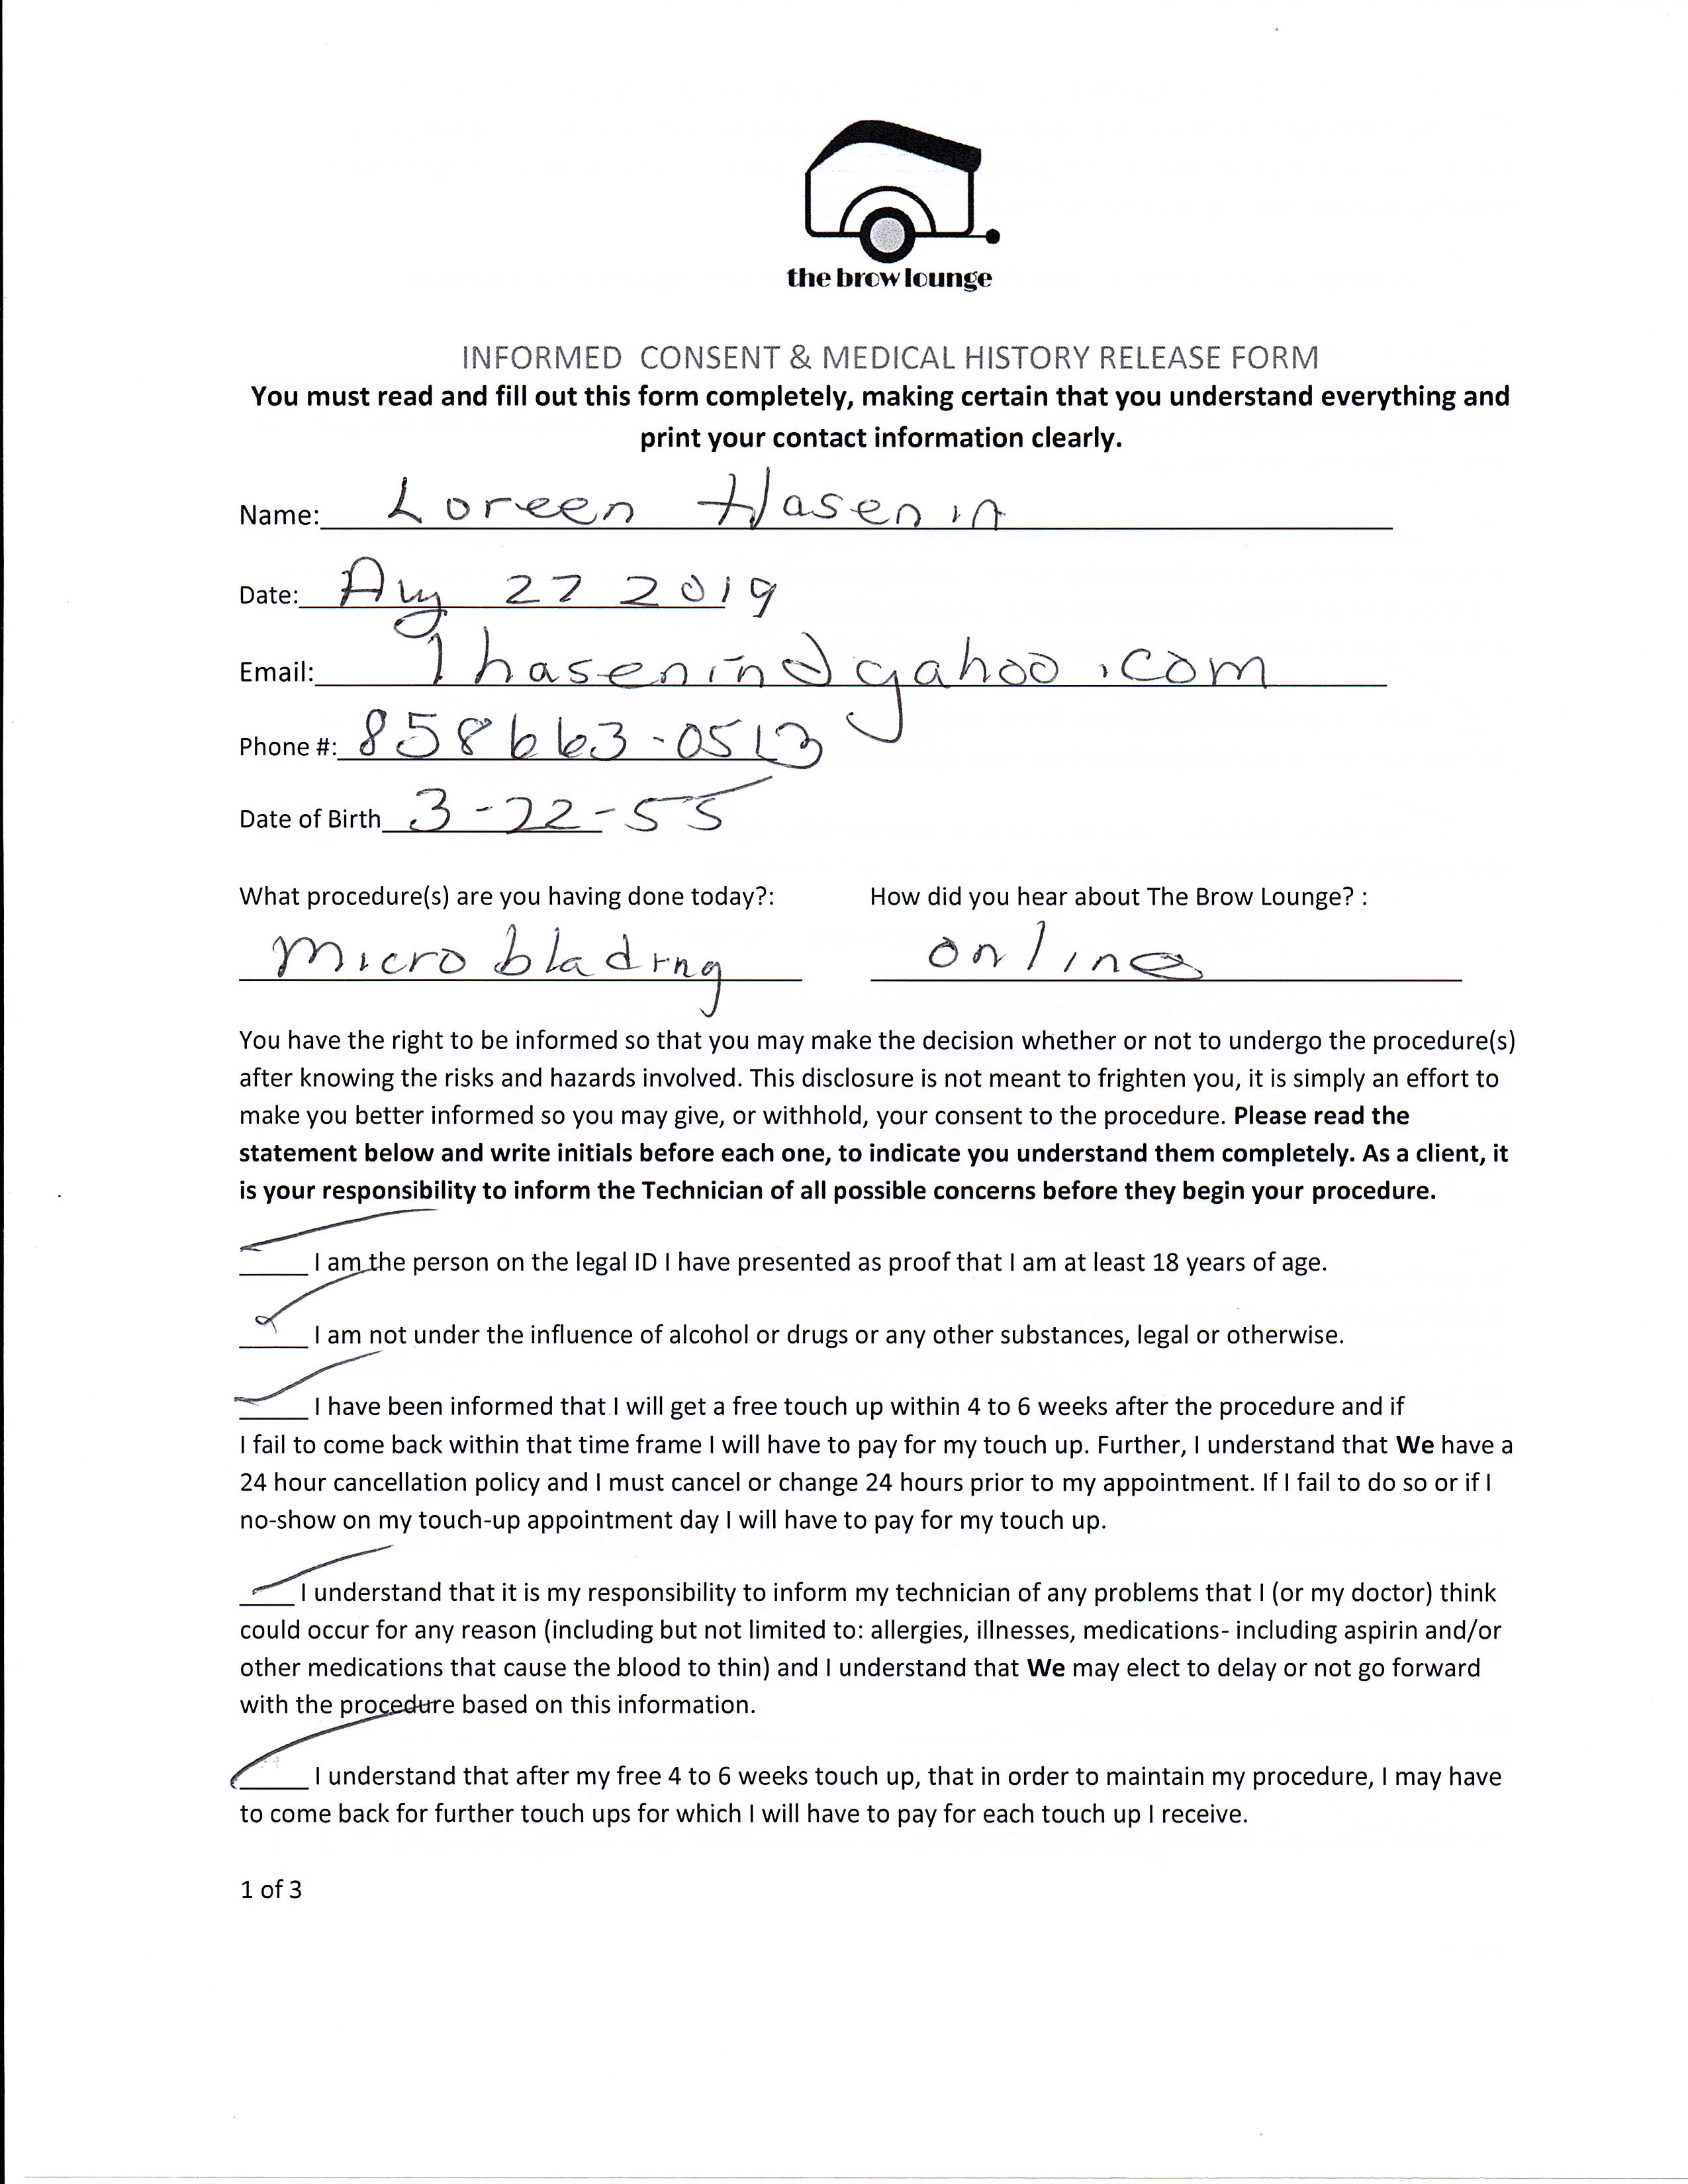 the brow lounge
INFORMED CONSENT & MEDICAL HISTORY RELEASE FORM
You must read and fill out this form completely, making certain that you understand everything and
print your contact information clearly.
Name: Loreen Hasenin
Date: Aug 27 2019
Email: lhasenin@yahoo.com
Phone #: 858 663-0513
Date of Birth 3-22-55
What procedure(s) are you having done today?: How did you hear about The Brow Lounge? :
Microblading online
You have the right to be informed so that you may make the decision whether or not to undergo the procedure(s)
after knowing the risks and hazards involved. This disclosure is not meant to frighten you, it is simply an effort to
make you better informed so you may give, or withhold, your consent to the procedure. Please read the
statement below and write initials before each one, to indicate you understand them completely. As a client, it
is your responsibility to inform the Technician of all possible concerns before they begin your procedure.
I am the person on the legal ID I have presented as proof that I am at least 18 years of age.
I am not under the influence of alcohol or drugs or any other substances, legal or otherwise.
I have been informed that I will get a free touch up within 4 to 6 weeks after the procedure and if
I fail to come back within that time frame I will have to pay for my touch up. Further, I understand that We have a
24 hour cancellation policy and I must cancel or change 24 hours prior to my appointment. If I fail to do so or if I
no-show on my touch-up appointment day I will have to pay for my touch up.
I understand that it is my responsibility to inform my technician of any problems that I (or my doctor) think
could occur for any reason (including but not limited to: allergies, illnesses, medications- including aspirin and/or
other medications that cause the blood to thin) and I understand that We may elect to delay or not go forward
with the procedure based on this information.
I understand that after my free 4 to 6 weeks touch up, that in order to maintain my procedure, I may have
to come back for further touch ups for which I will have to pay for each touch up I receive.
1 of 3